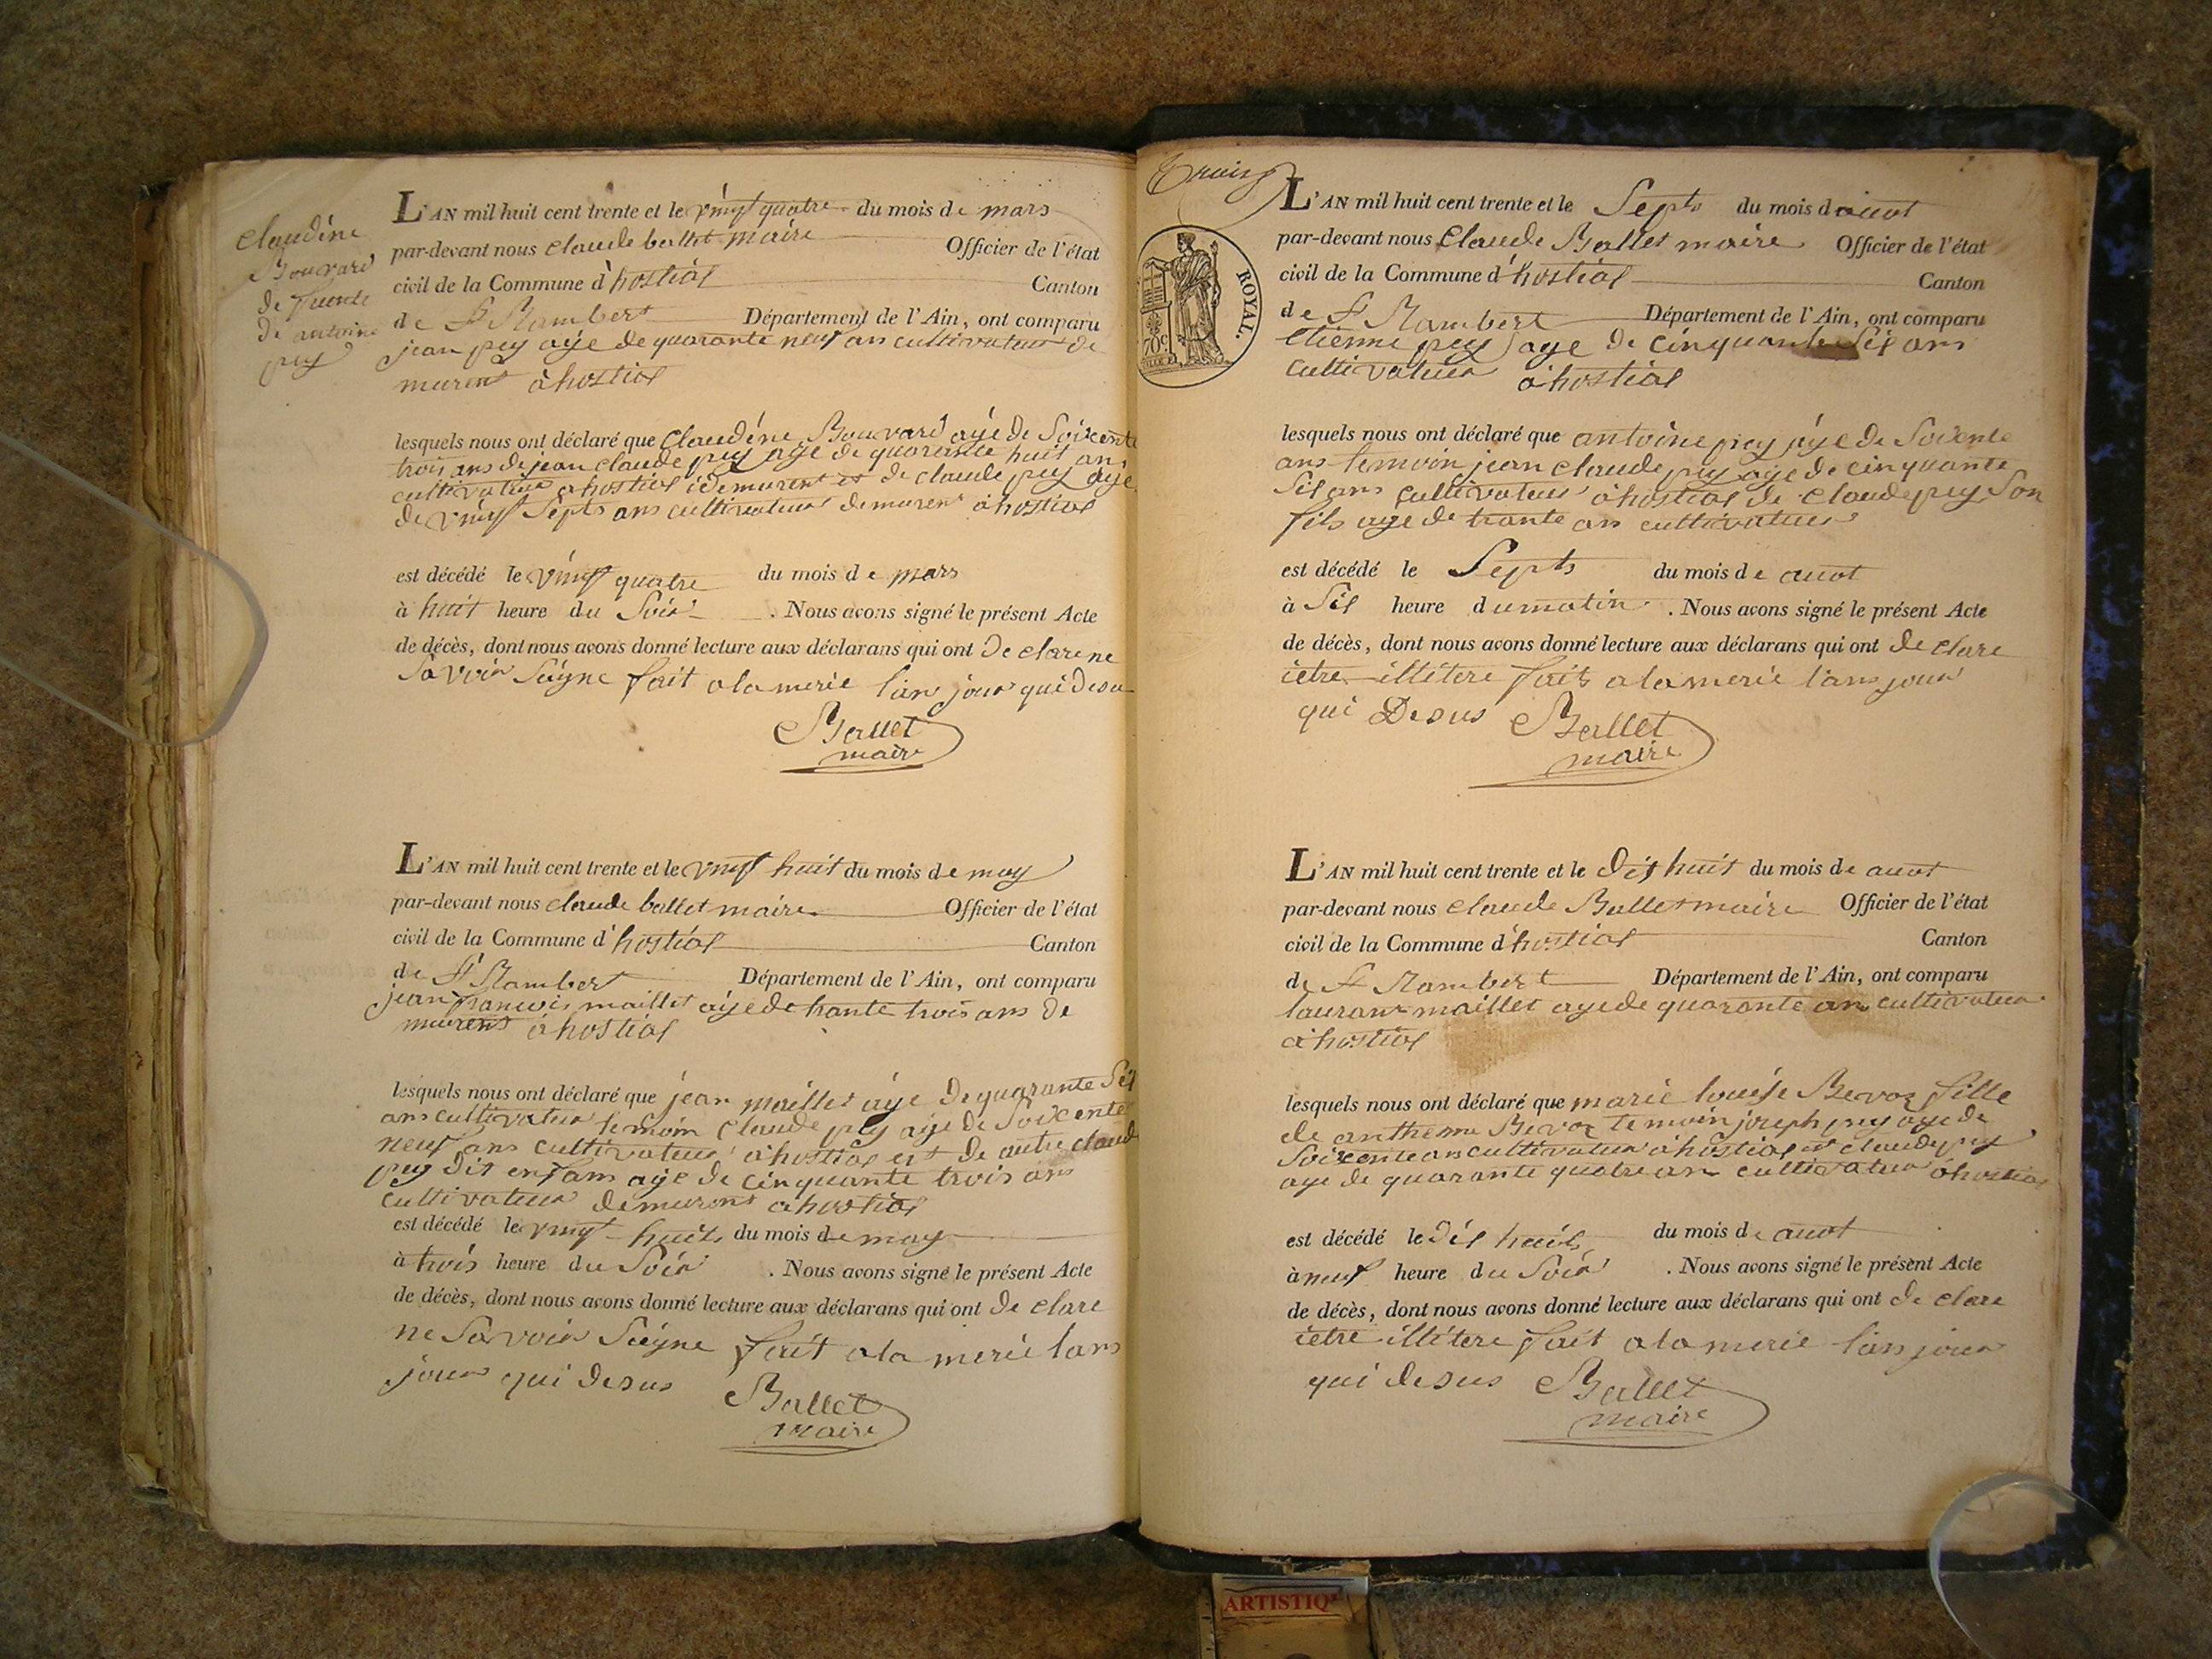 claudine
Bouvard
de
de antoine
pey
L'AN mil huit cent trente et le vingt quatre du mois de mars
par-devant nous claude ballet maire Officier de l'état
civil de la Commune d'hostias Canton
de St Rambert Département de l'Ain, ont comparu
jean pey aýe de quarante neuf ans cultivateur de
murent à hostias
lesquels nous ont déclaré que Claudéne Bouvard aýé de Soixente
trois ans de jean claude pey aýe de quarante huit ans
cultivateur a hostias idemurent et de claude pey aýe
de vingt Septs ans cultivateur demurent à hostias
est décédé le vingt quatre du mois de mars
à huit heure du Soir . Nous avons signé le présent Acte
de décès, dont nous avons donné lecture aux déclarans qui ont de clare ne
Savoir Séigne fait a la merie l'an jour qui desu
Ballet
maire
L'AN mil huit cent trente et le vingt huit du mois de may
par-devant nous claude ballet maire Officier de l'état
civil de la Commune d'hostias Canton
de St Rambert Département de l'Ain, ont comparu
jean francois maillet aýe de trante trois ans de
murent à hostias
lesquels nous ont déclaré que jean maillet aýe de quarante Sis
ans cultivateur temoin claude pey aýe de Soixente
neuf ans cultivateur à hostias et de autre claude
pey dit enfam aýe de cinquante trois ans
cultivateur demurent a hostias
est décédé le vingt huits du mois de may
à trois heure du Soir . Nous avons signé le présent Acte
de décès, dont nous avons donné lecture aux déclarans qui ont de clare
ne Savoir Séigne fait a la merie l'an
jour qui desus Ballet
maire
Trois
ROYAL.
70c
L'AN mil huit cent trente et le Septs du mois d auot
par-devant nous Claude Ballet maire Officier de l'état
civil de la Commune d'hostias Canton
de St Rambert Département de l'Ain, ont comparu
etienne pey aye de cinquante Sis ans
cultivateur à hostias
lesquels nous ont déclaré que antoine pey aýe de Soixente
ans temoin jean claude pey aye de cinquante
Sis ans cultivateur à hostias de claude pey Son
fils aye de trante an cultivateur
est décédé le Septs du mois de auot
à Sis heure du matin . Nous avons signé le présent Acte
de décès, dont nous avons donné lecture aux déclarans qui ont de clare
ietre illétere fait a la merie l'an jour
qui Desus Ballet
maire
L'AN mil huit cent trente et le dis huit du mois de auot
par-devant nous claude Ballet maire Officier de l'état
civil de la Commune d'hostias Canton
de St Rambert Département de l'Ain, ont comparu
lauran maillet aye de quarante an cultivateur
à hostias
lesquels nous ont déclaré que marie louise Bevoz fille
de antheme Bevoz temoin joseph pey aye de
Soixente an cultivateur à hostias et claude pey
aye de quarante quatre an cultivateur à hostias
est décédé le dis huits du mois de auot
à neuf heure du Soir . Nous avons signé le présent Acte
de décès, dont nous avons donné lecture aux déclarans qui ont de clare
ietre illétere fait a la merie l'an jour
qui desus Ballet
maire
ARTISTIQ